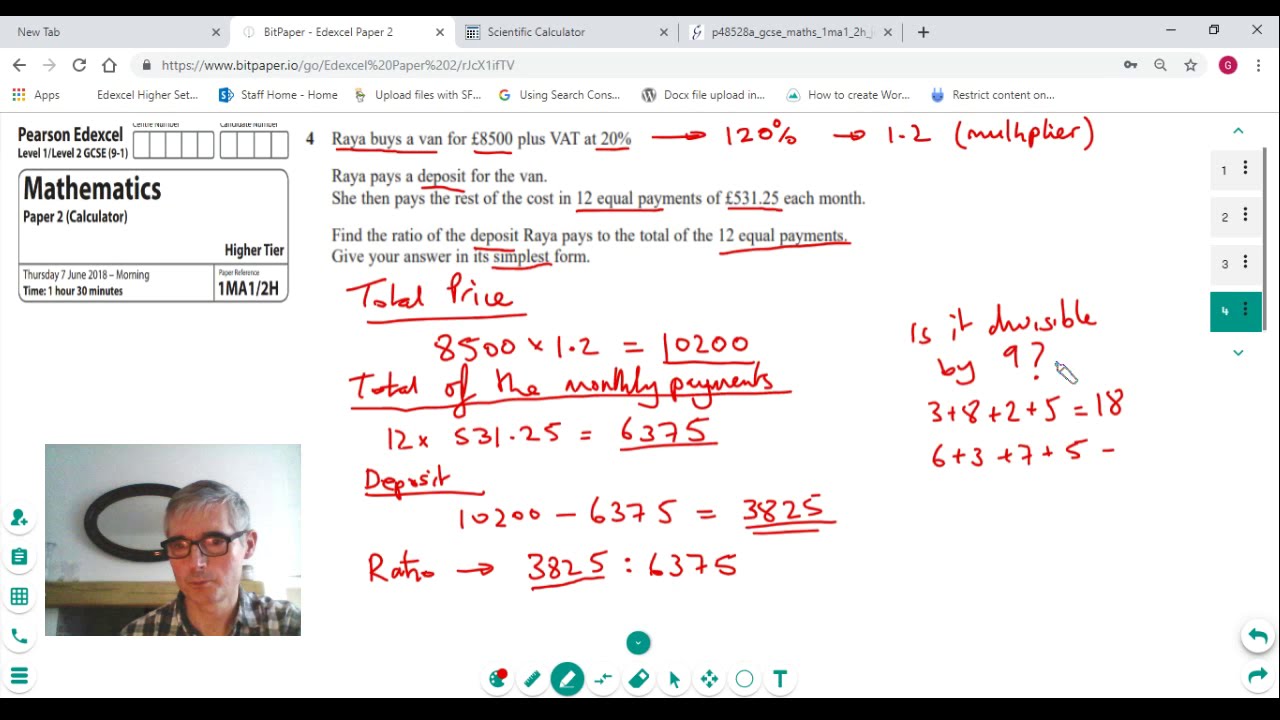 New Tab
BitPaper - Edexcel Paper 2
Scientific Calculator
p48528a_gcse_maths_1ma1_2h_
https://www.bitpaper.io/go/Edexcel%20Paper%202/rJcX1ifTV
G
Apps
Edexcel Higher Set...
Staff Home - Home
Upload files with SF...
Using Search Cons...
Docx file upload in...
How to create Wor...
Restrict content on...
Pearson Edexcel
Level 1/Level 2 GCSE (9-1)
Centre Number
Candidate Number
Mathematics
Paper 2 (Calculator)
Higher Tier
Thursday 7 June 2018 – Morning
Time: 1 hour 30 minutes
Paper Reference
1MA1/2H
4 Raya buys a van for £8500 plus VAT at 20% → 120% → 1.2 (multplier)
Raya pays a deposit for the van.
She then pays the rest of the cost in 12 equal payments of £531.25 each month.
Find the ratio of the deposit Raya pays to the total of the 12 equal payments.
Give your answer in its simplest form.
Total Price
8500 × 1.2 = 10200
Total of the monthly payments
12 × 531.25 = 6375
Deposit
10200 – 6375 = 3825
Ratio → 3825 : 6375
Is it divisible
by 9?
3+8+2+5 = 18
6+3+7+5 –
1
2
3
4
T